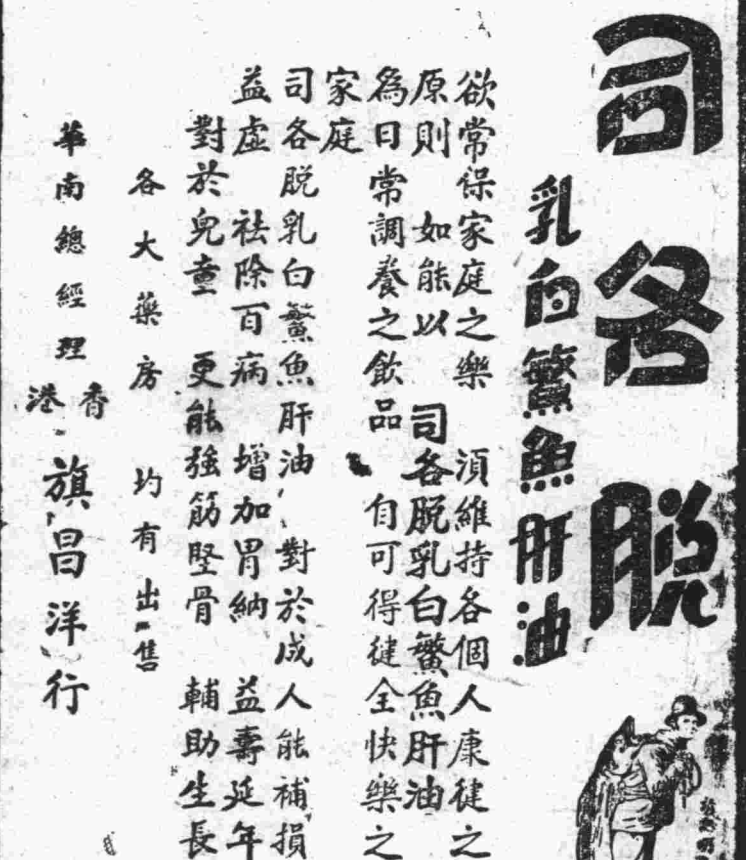 司各脫
乳白鰵魚肝油
欲常保家庭之樂 須維持各個人康健之
原則 如能以 司各脫乳白鰵魚肝油
為日常調養之飲品 自可得健全快樂之
家庭
司各脫乳白鰵魚肝油，對於成人能補損
益虛 祛除百病 增加胃納 益壽延年
對於兒童 更能強筋堅骨 輔助生長
各大藥房 均有出售
華南總經理 香港 旗昌洋行